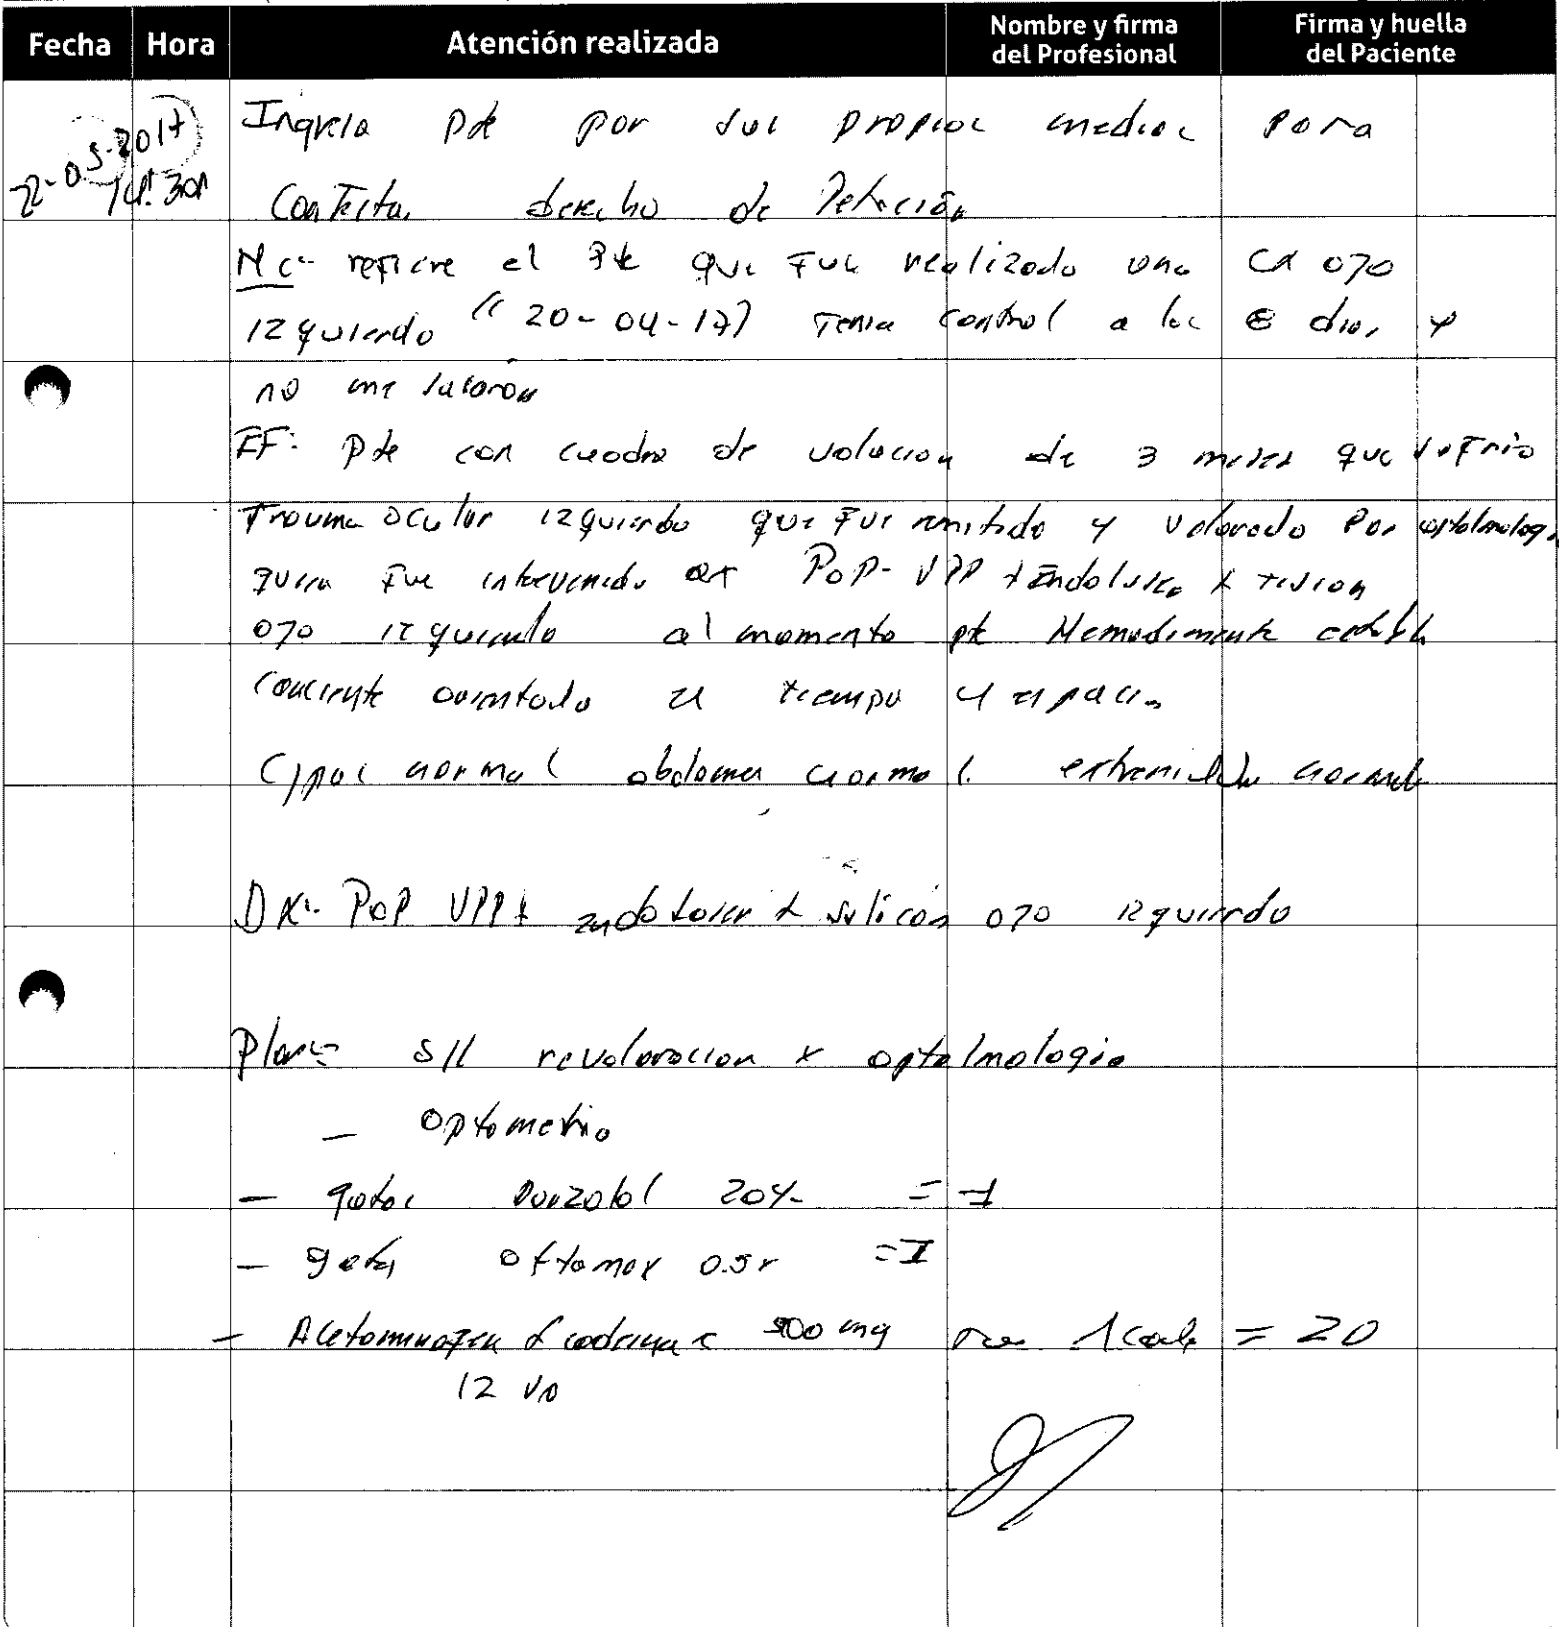 Fecha Hora Atención realizada Nombre y firma del Profesional Firma y huella del Paciente
22-05-2017
14:30
Ingresa Pte por sus propios medios para
Contestar derecho de Petición
Mc:- refiere el Pte que fue realizado una CX ojo
izquierdo (20-04-17) Tenia control a los 8 dias y
no me sacaron
EF: Pte con cuadro de volucion de 3 meses que sufrio
Trauma ocular izquierdo que fue remitido y valorado por optalmologi
quien fue intervenido POP- VPP + Endolaser +
ojo izquierdo al momento pte Hemodinamente estable
conciente orientado en tiempo y espacio
C/pul normal abdomen normal. extremidades normal
DX:- POP VPP + endolaser + silicon ojo izquierdo
Plan:- S/ revaloracion x optalmologia
- Optometria
- gotas 20%- = 1
- gotas oftamox 0.5% = I
- Acetaminofen + codeina 500 mg 1 = 20
12